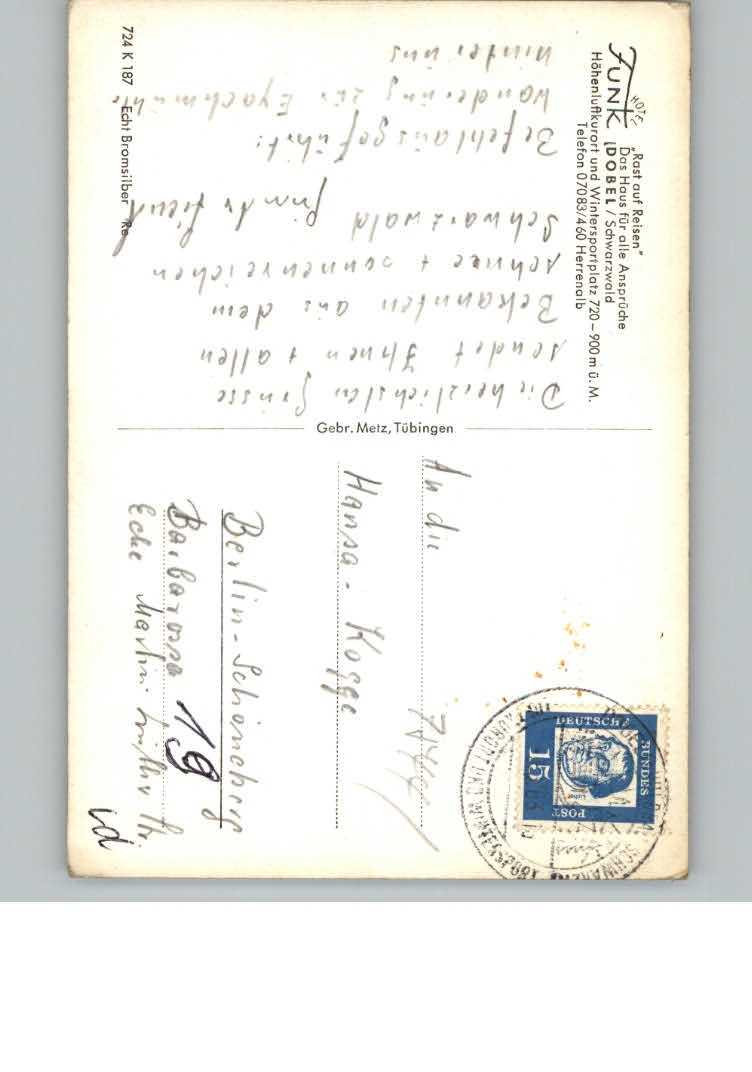 HOTEL
FUNK
"Rast auf Reisen"
Das Haus für alle Ansprüche
DOBEL / Schwarzwald
Höhenluftkurort und Wintersportplatz 720 – 900 m ü. M.
Telefon 0 70 83/4 60 Herrenalb
Die herzlichsten Grüsse
sendet Ihnen + allen
Bekannten aus dem
schnee + sonnenreichen
Schwarzwald
Befehl ausgeführt:
Wanderung zur Eyachmühle
hinter uns
724 K 187
Echt Bromsilber
Gebr. Metz, Tübingen
An die
Hansa-Kogge
Berlin-Schöneberg
Barbarossa 19
Ecke Martin Luther Str.
DEUTSCHE
BUNDES
POST
15
Luther